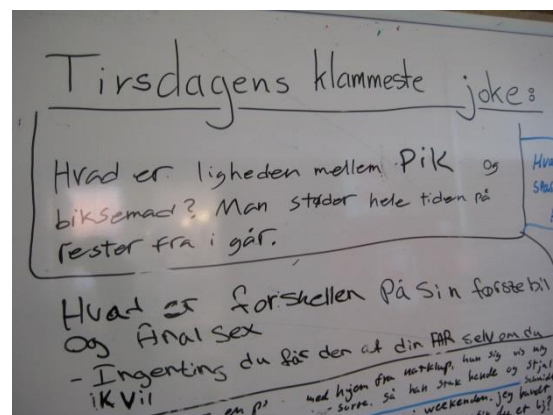 Tirsdagens klammeste joke:
Hvad er ligheden mellem Pik og
biksemad? Man støder hele tiden på
rester fra i går.
Hvad er forskellen på sin første bil
og Analsex
- Ingenting du får den af din FAR selv om du
ikk vil
med hjem fra natklup, hun sig vis mig
så han stak hende og stjal
weekenden. jeg